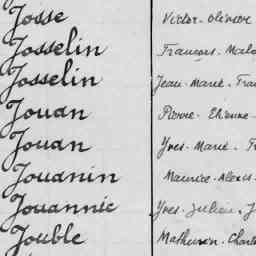 Josse Victor - Olivier
Josselin François - Malo
Josselin Jean - Marie - Fran
Jouan Pierre - Etienne -
Jouan Yves - Marie - F
Jouanin Maurice - Alexis -
Jouannic Yves - Julien - J
Jouble Mathurin - Charl